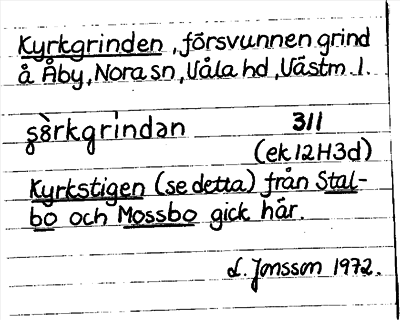 Kyrkgrinden, försvunnen grind
å Åby, Nora sn, Våla hd, Västm. l.
ʂ8̀rkgrìndən 311
(ek 12H3d)
Kyrkstigen (se detta) från Stal-
bo och Mossbo gick här.
L. Jonsson 1972.